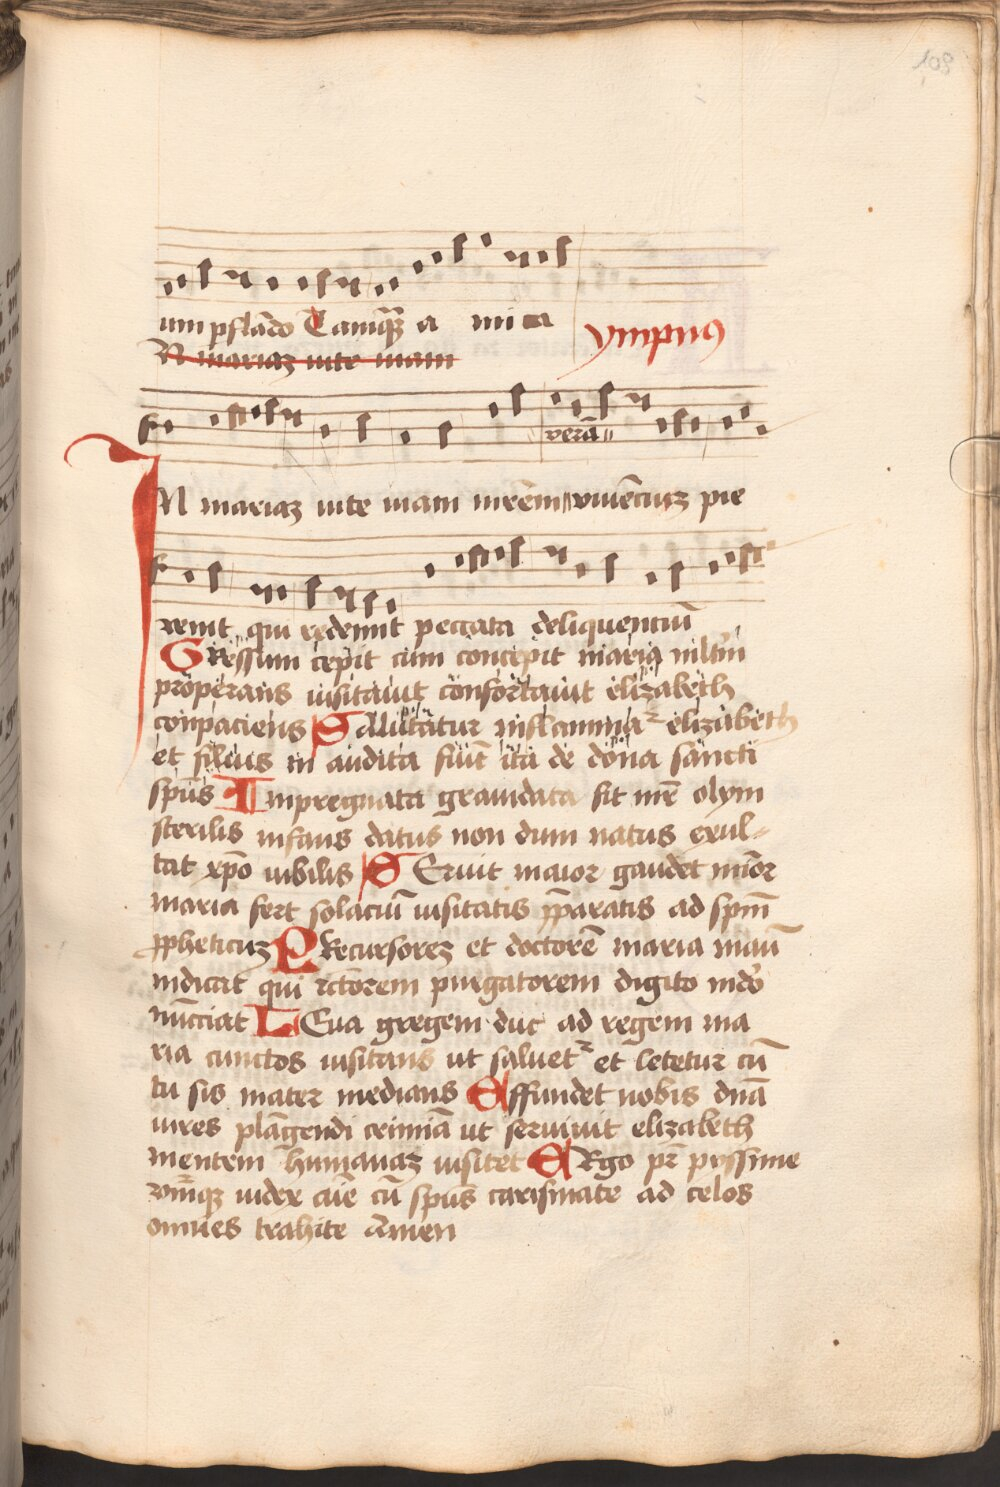 109
um pſlādo Tamqȝ a mica
ympnꝰ
N mariaȝ vite viam
verā
IN mariaȝ vite viam mrēm viventiuȝ pie
venit qui redemit peccata deliquenciū
GRessum cepit cum concepit maria
properans visitavit confortavit elizabeth
conpaciens SAlutatur inflammat elizabeth
et filius in audita fiūt ita de dona sancti
spūs Impregnata gravidata sit mr̄ olym
sterilis infans datus non dum natus exul-
tat xpō iubilis SErvit maior gaudet minor
maria fert solaciū visitatis p̄paratis ad spm̄
ꝓpheticuȝ PRecursoreȝ et doctorē maria
indicat qui rectorem purgatorem digito
nūcciat LEva gregem duc ad regem ma
ria cunctos visitans ut salvet et letetur cū
tu sis mater medians Affundet nobis dnā
vires plāgendi crimīa ut servivit elizabeth
mentem humanaȝ visitet ERgo pr̄ pyssime
iudex cū spūs carismate ad celos
omnes trahite Amen